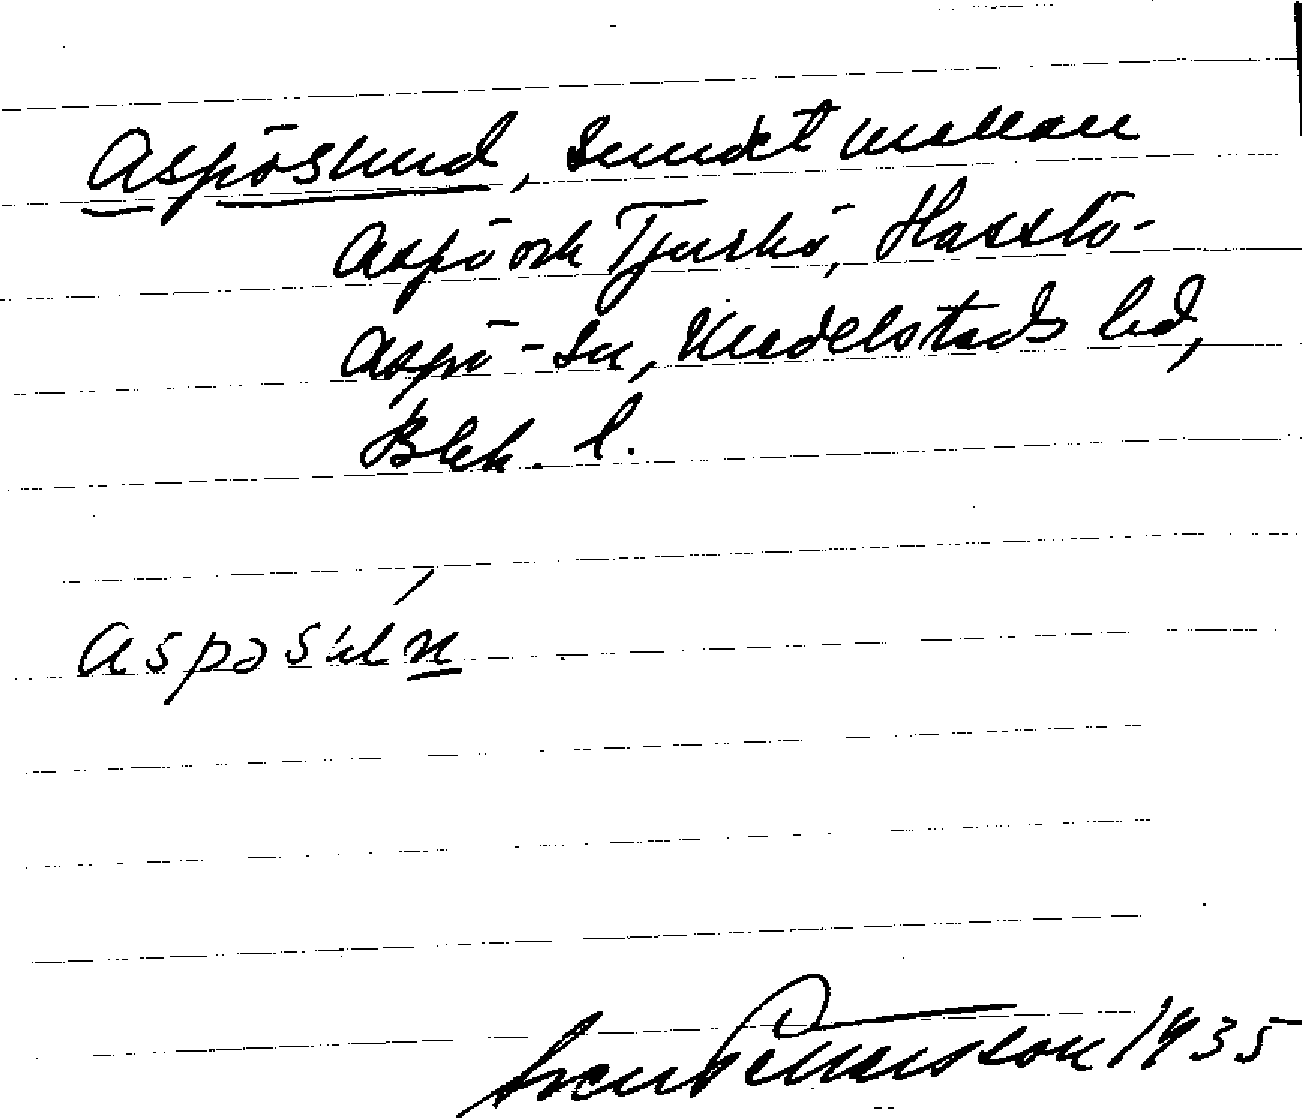 Aspösund, Sundet mellan
Aspö och Tjurkö, Hasslö-
Aspö-sn, Medelstads hd,
Blek. l.
Sven Benson 1935